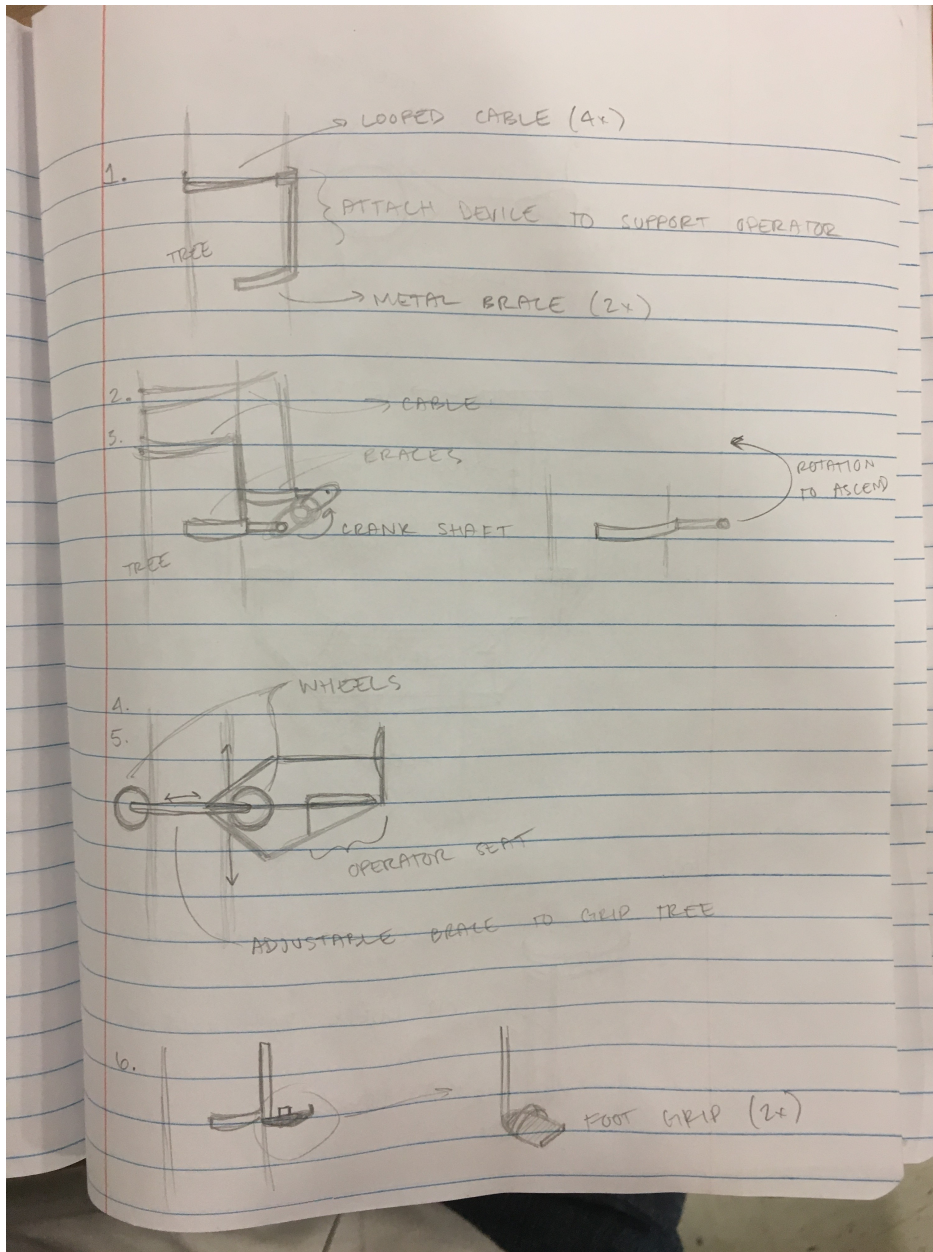 LOOPED CABLE (4x)
1.
ATTACH DEVICE TO SUPPORT OPERATOR
TREE
METAL BRACE (2x)
2.
CABLE
3.
BRACES
ROTATION
TO ASCEND
CRANK SHAFT
TREE
WHEELS
4.
5.
OPERATOR SEAT
ADJUSTABLE BRACE TO GRIP TREE
6.
FOOT GRIP (2x)